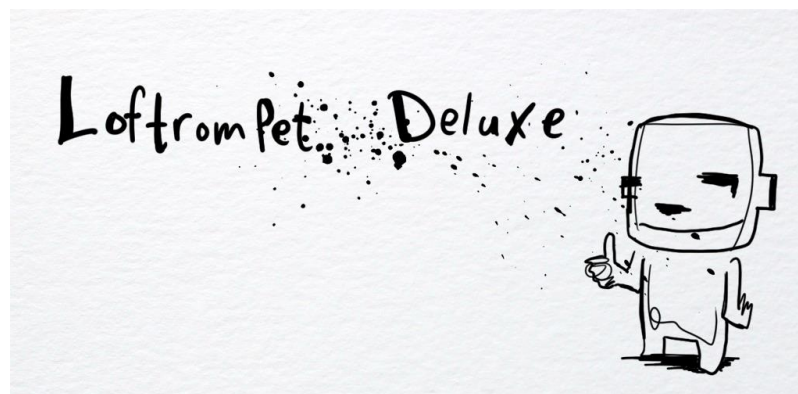 Loftrompet.. Deluxe